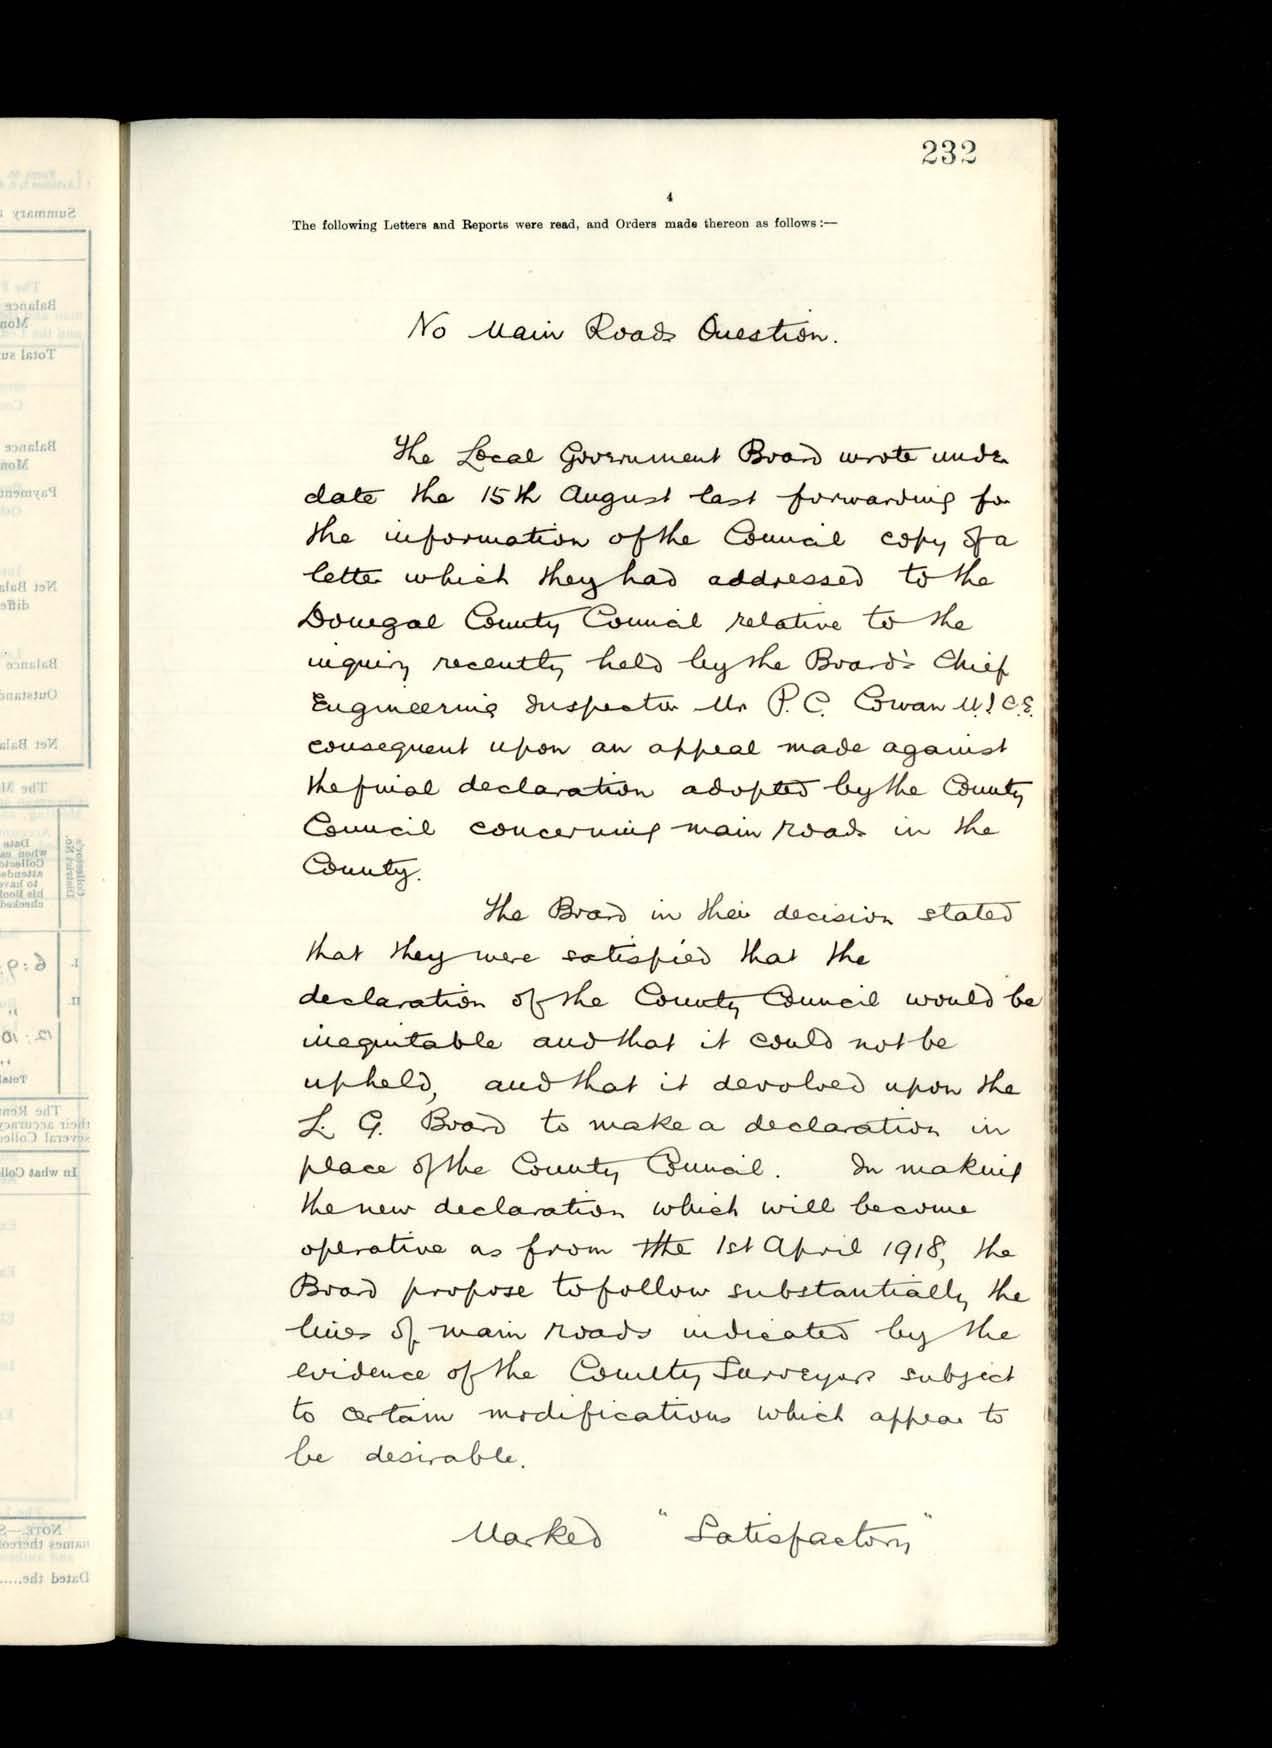 232
4
The following Letters and Reports were read, and Orders made thereon as follows :—
No Main Roads Question.
The Local Government Board wrote under
date the 15th August last forwarding for
the information of the Council copy of a
letter which they had addressed to the
Donegal County Council relative to the
inquiry recently held by the Board's Chief
Engineering Inspector Mr P. C. Cowan M.I.C.E.
consequent upon an appeal made against
the final declaration adopted by the County
Council concerning main roads in the
County.
The Board in their decision stated
that they were satisfied that the
declaration of the County Council would be
inequitable and that it could not be
upheld, and that it devolved upon the
L. G. Board to make a declaration in
place of the County Council. In making
the new declaration which will become
operative as from the 1st April 1918, the
Board propose to follow substantially the
lines of main roads indicated by the
evidence of the County Surveyors subject
to certain modifications which appear to
be desirable.
Marked "Satisfactory"